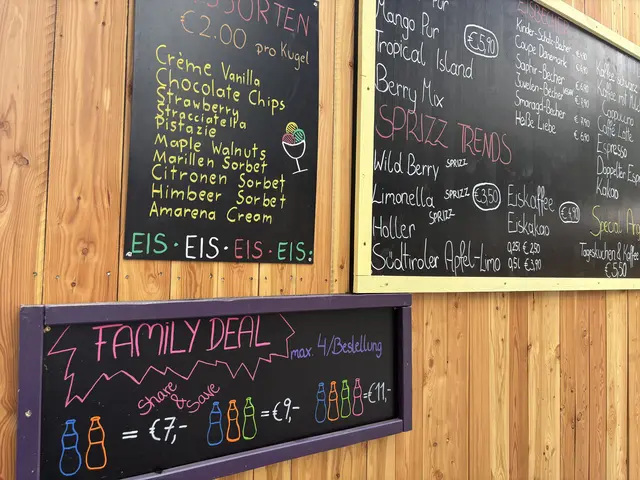 SORTEN
€2.00 pro Kugel
Crème Vanilla
Chocolate Chips
Strawberry
Stracciatella
Pistazie
Maple Walnuts
Marillen Sorbet
Citronen Sorbet
Himbeer Sorbet
Amarena Cream
EIS · EIS · EIS · EIS:
FAMILY DEAL
max. 4/Bestellung
Share
& Save
= €7,-
= €9,-
= €11,-
Mango Pur
€5,90
Tropical Island
Berry Mix
SPRIZZ TRENDS
Wild Berry SPRIZZ
Limonella SPRIZZ €3,50
Holler SPRIZZ
Südtiroler Apfel-Limo 0,25l € 2,50
0,5l € 3,90
Eiskaffee
Eiskakao
€4,90
Coupe Dänemark
Saphir-Becher
Juwelen-Becher
Smaragd-Becher
Heiße Liebe
Kaffee schwarz
Kaffee mit
Cappuccino
Caffè Latte
Espresso
Doppelter Esp
Kakao
Special
Tageskuchen & Kaffee
€5,50